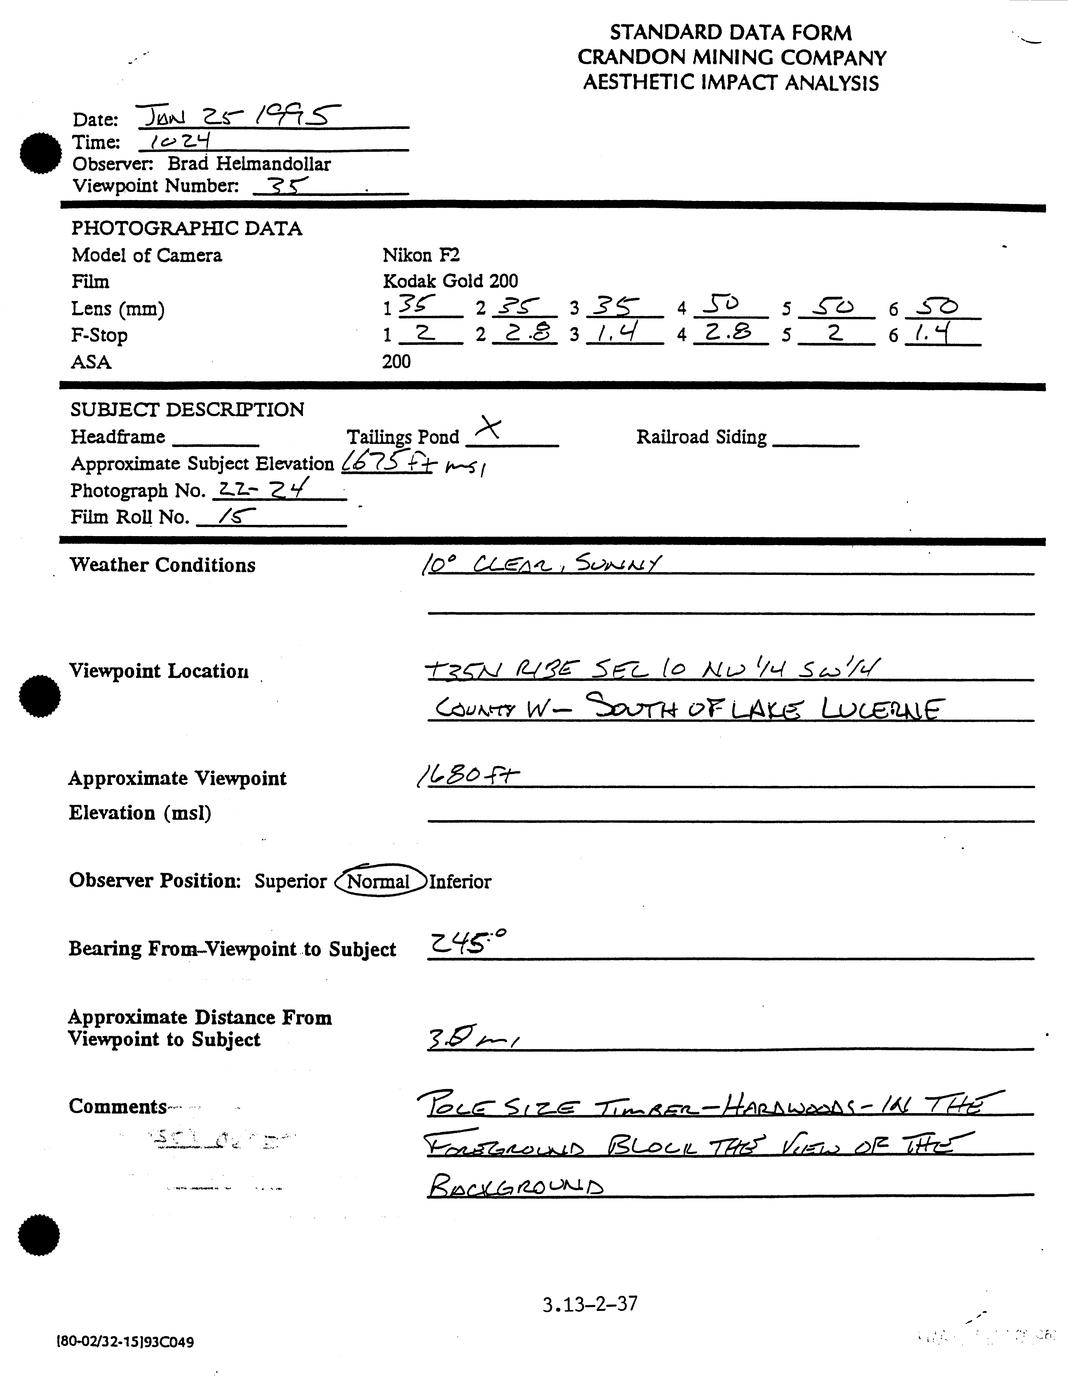 STANDARD DATA FORM
CRANDON MINING COMPANY
AESTHETIC IMPACT ANALYSIS
Date: JAN 25 1995
Time: 1024
Observer: Brad Helmandollar
Viewpoint Number: 35
PHOTOGRAPHIC DATA
Model of Camera Nikon F2
Film Kodak Gold 200
Lens (mm) 1 35 2 35 3 35 4 50 5 50 6 50
F-Stop 1 2 2 2.8 3 1.4 4 2.8 5 2 6 1.4
ASA 200
SUBJECT DESCRIPTION
Headframe Tailings Pond X Railroad Siding
Approximate Subject Elevation 1675 ft msl
Photograph No. 22-24
Film Roll No. 15
Weather Conditions 10° CLEAR, SUNNY
Viewpoint Location T35N R13E SEC 10 NW 1/4 SW 1/4
COUNTY W - SOUTH OF LAKE LUCERNE
Approximate Viewpoint 1680 ft
Elevation (msl)
Observer Position: Superior Normal Inferior
Bearing From-Viewpoint to Subject 245°
Approximate Distance From
Viewpoint to Subject 3.0 mi
Comments POLE SIZE TIMBER-HARDWOODS-IN THE
FOREGROUND BLOCK THE VIEW OF THE
BACKGROUND
3.13-2-37
[80-02/32-15]93C049